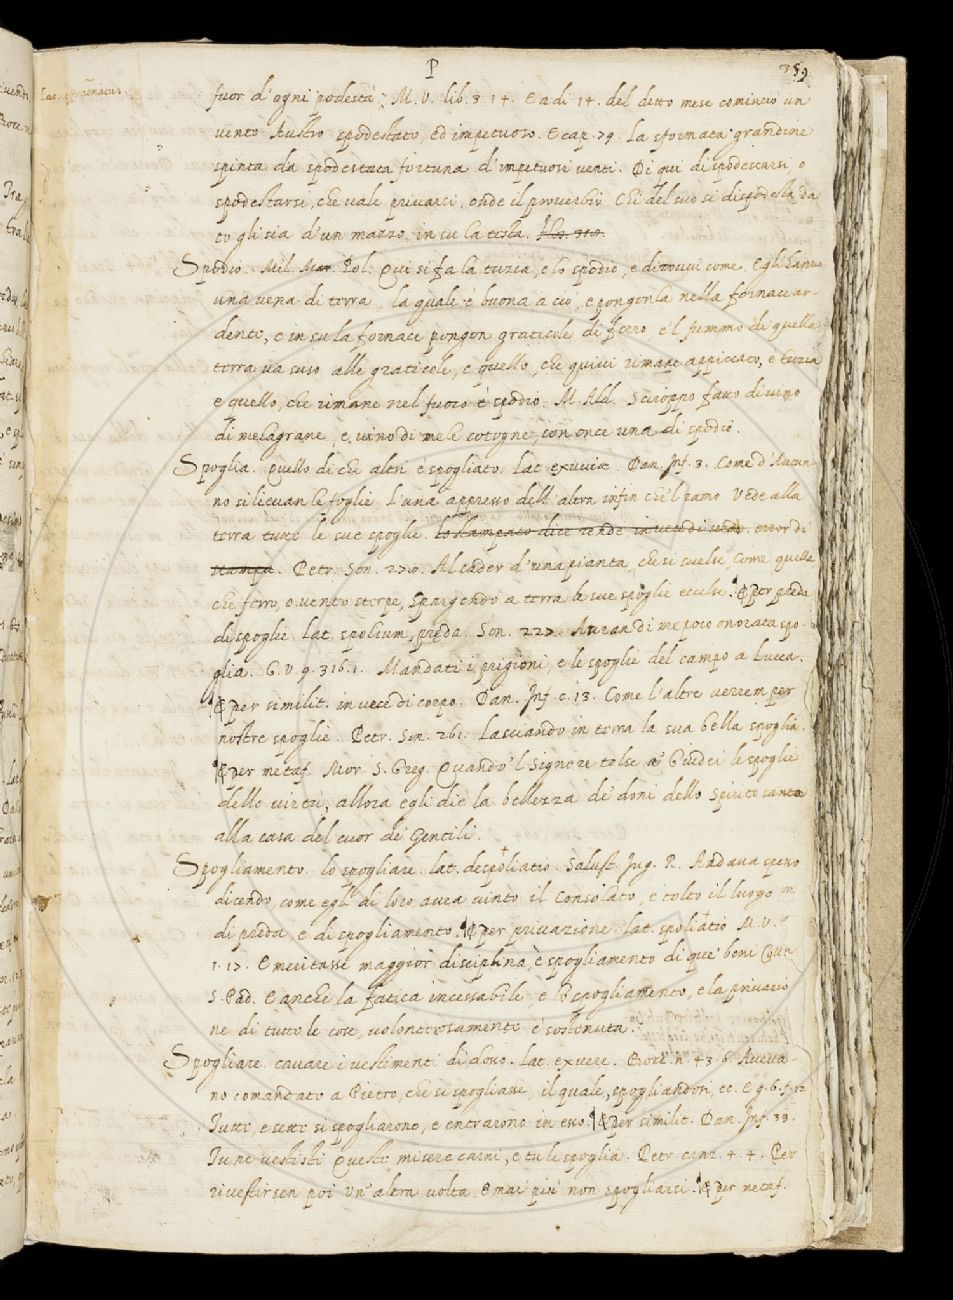 P
359
fuor d'ogni podestà; M. V. lib. 3. 14. E a dì 14. del detto mese cominciò un
vento Austro spodestato, ed impetuoso. E cap. 79. la sformata grandine
spinta da spodestata fortuna d'impetuosi venti. Di qui dispodestarsi o
spodestarsi, che vale privarsi, onde il proverbio. Chi del suo si dispodesta, da
to gli sia d'un mazzo in su la testa.
Spodio. Mil. Mar. Pol. Qui si fa la tuzia, e lo spodio, e dirovvi come. Egli hanno
una vena di terra, la quale è buona a ciò, e pongonla nella fornace ar-
dente, e in su la fornace pongon graticole di ferro, e'l fummo di quella
terra va suso alle graticole, e quello, che quivi rimane appiccato, è tuzia
e quello, che rimane nel fuoco è spodio. M. Ald. Sciroppo fatto di vino
di melagrane, e vino di mele cotogne, con once una di spodio.
Spoglia. Quello di che altri è spogliato. Lat. exuviæ. Dan. Inf. 3. Come d'Autun-
no si lievan le foglie L'una appresso dell'altra infin che'l ramo Vede alla
terra tutte le sue spoglie. lo stampato dice rende in vece di vede. error di
stampa. Petr. Son. 270. Al cader d'una pianta, che si svelse, Come quella
che ferro, o vento sterpe, Spargendo a terra le sue spoglie eccelse. ¶ per preda
di spoglie. Lat. spolium, præda. Son. 227. Avran di me poco onorata spo-
glia. G. V. 9. 316. 1. Mandati i prigioni, e le spoglie del campo a Lucca.
¶ per similit. in vece di corpo. Dan. Inf. c. 13. Come l'altre verrem per
nostre spoglie. Petr. Son. 261. Lasciando in terra la sua bella spoglia.
¶ per metaf. Mor. S. Greg. Quando 'l Signore tolse a' Giudei le spoglie
delle virtù, allora egli diè la bellezza de' doni dello Spirito santo
alla casa del cuor de' Gentili.
Spogliamento. lo spogliare. lat. despoliatio. Salust. Jug. R. Andava spesso
dicendo, come egli di loro avea vinto il Consolato, e tolto il luogo in
di preda e di spogliamento. ¶ per privazione. lat. spoliatio M. V.
1. 17. E meritasse maggior disciplina, e spogliamento di que' beni Coll.
S. Pad. E anche la fatica incessabile e lo spogliamento, e la privazio
ne di tutte le cose, volonterosamente è sostenuta.
Spogliare. cavare i vestimenti di dosso. Lat. exuere. Bocc. n. 43. 6. Aveva-
no comandato a Pietro, che si spogliasse, il quale, spogliandosi, ec. E g. 6. f. 12
Tutti, e sette si spogliarono, e entrarono in esso. ¶ per similit. Dan. Inf. 33.
Tu ne vestisti Queste misere carni, e tu le spoglia. Petr. canz. 4. 4. Per
rivestirsen poi Un' altra volta, E mai più non spogliarsi. ¶ per metaf.